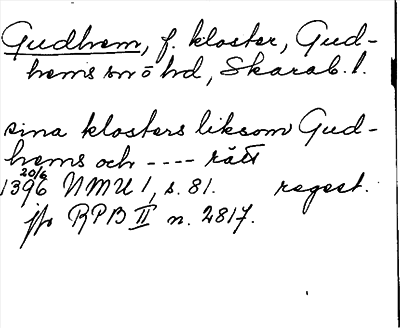 Gudhem, f. kloster, Gud-
hems sn o hd, Skarab. l.
sina klosters liksom Gud-
hems och ---- rätt
20/6
1396 NMU 1, s. 81. regest.
jfr RPB II n. 2817.